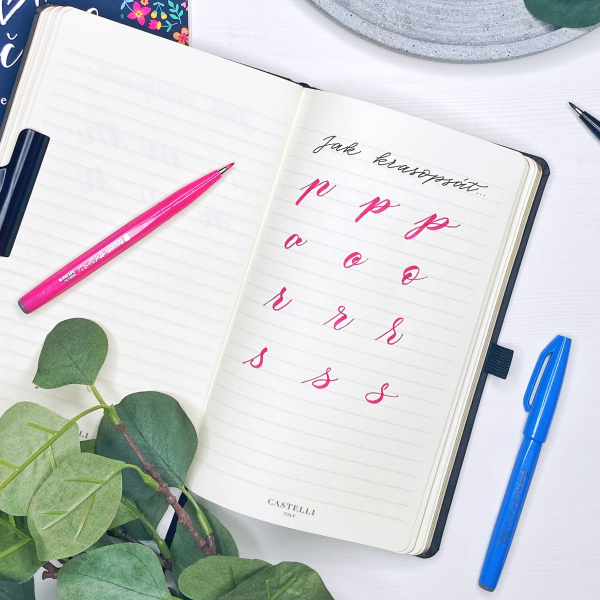 Jak krasopsát...
p p p
o o o
r r r
s s s
CASTELLI
ITALY